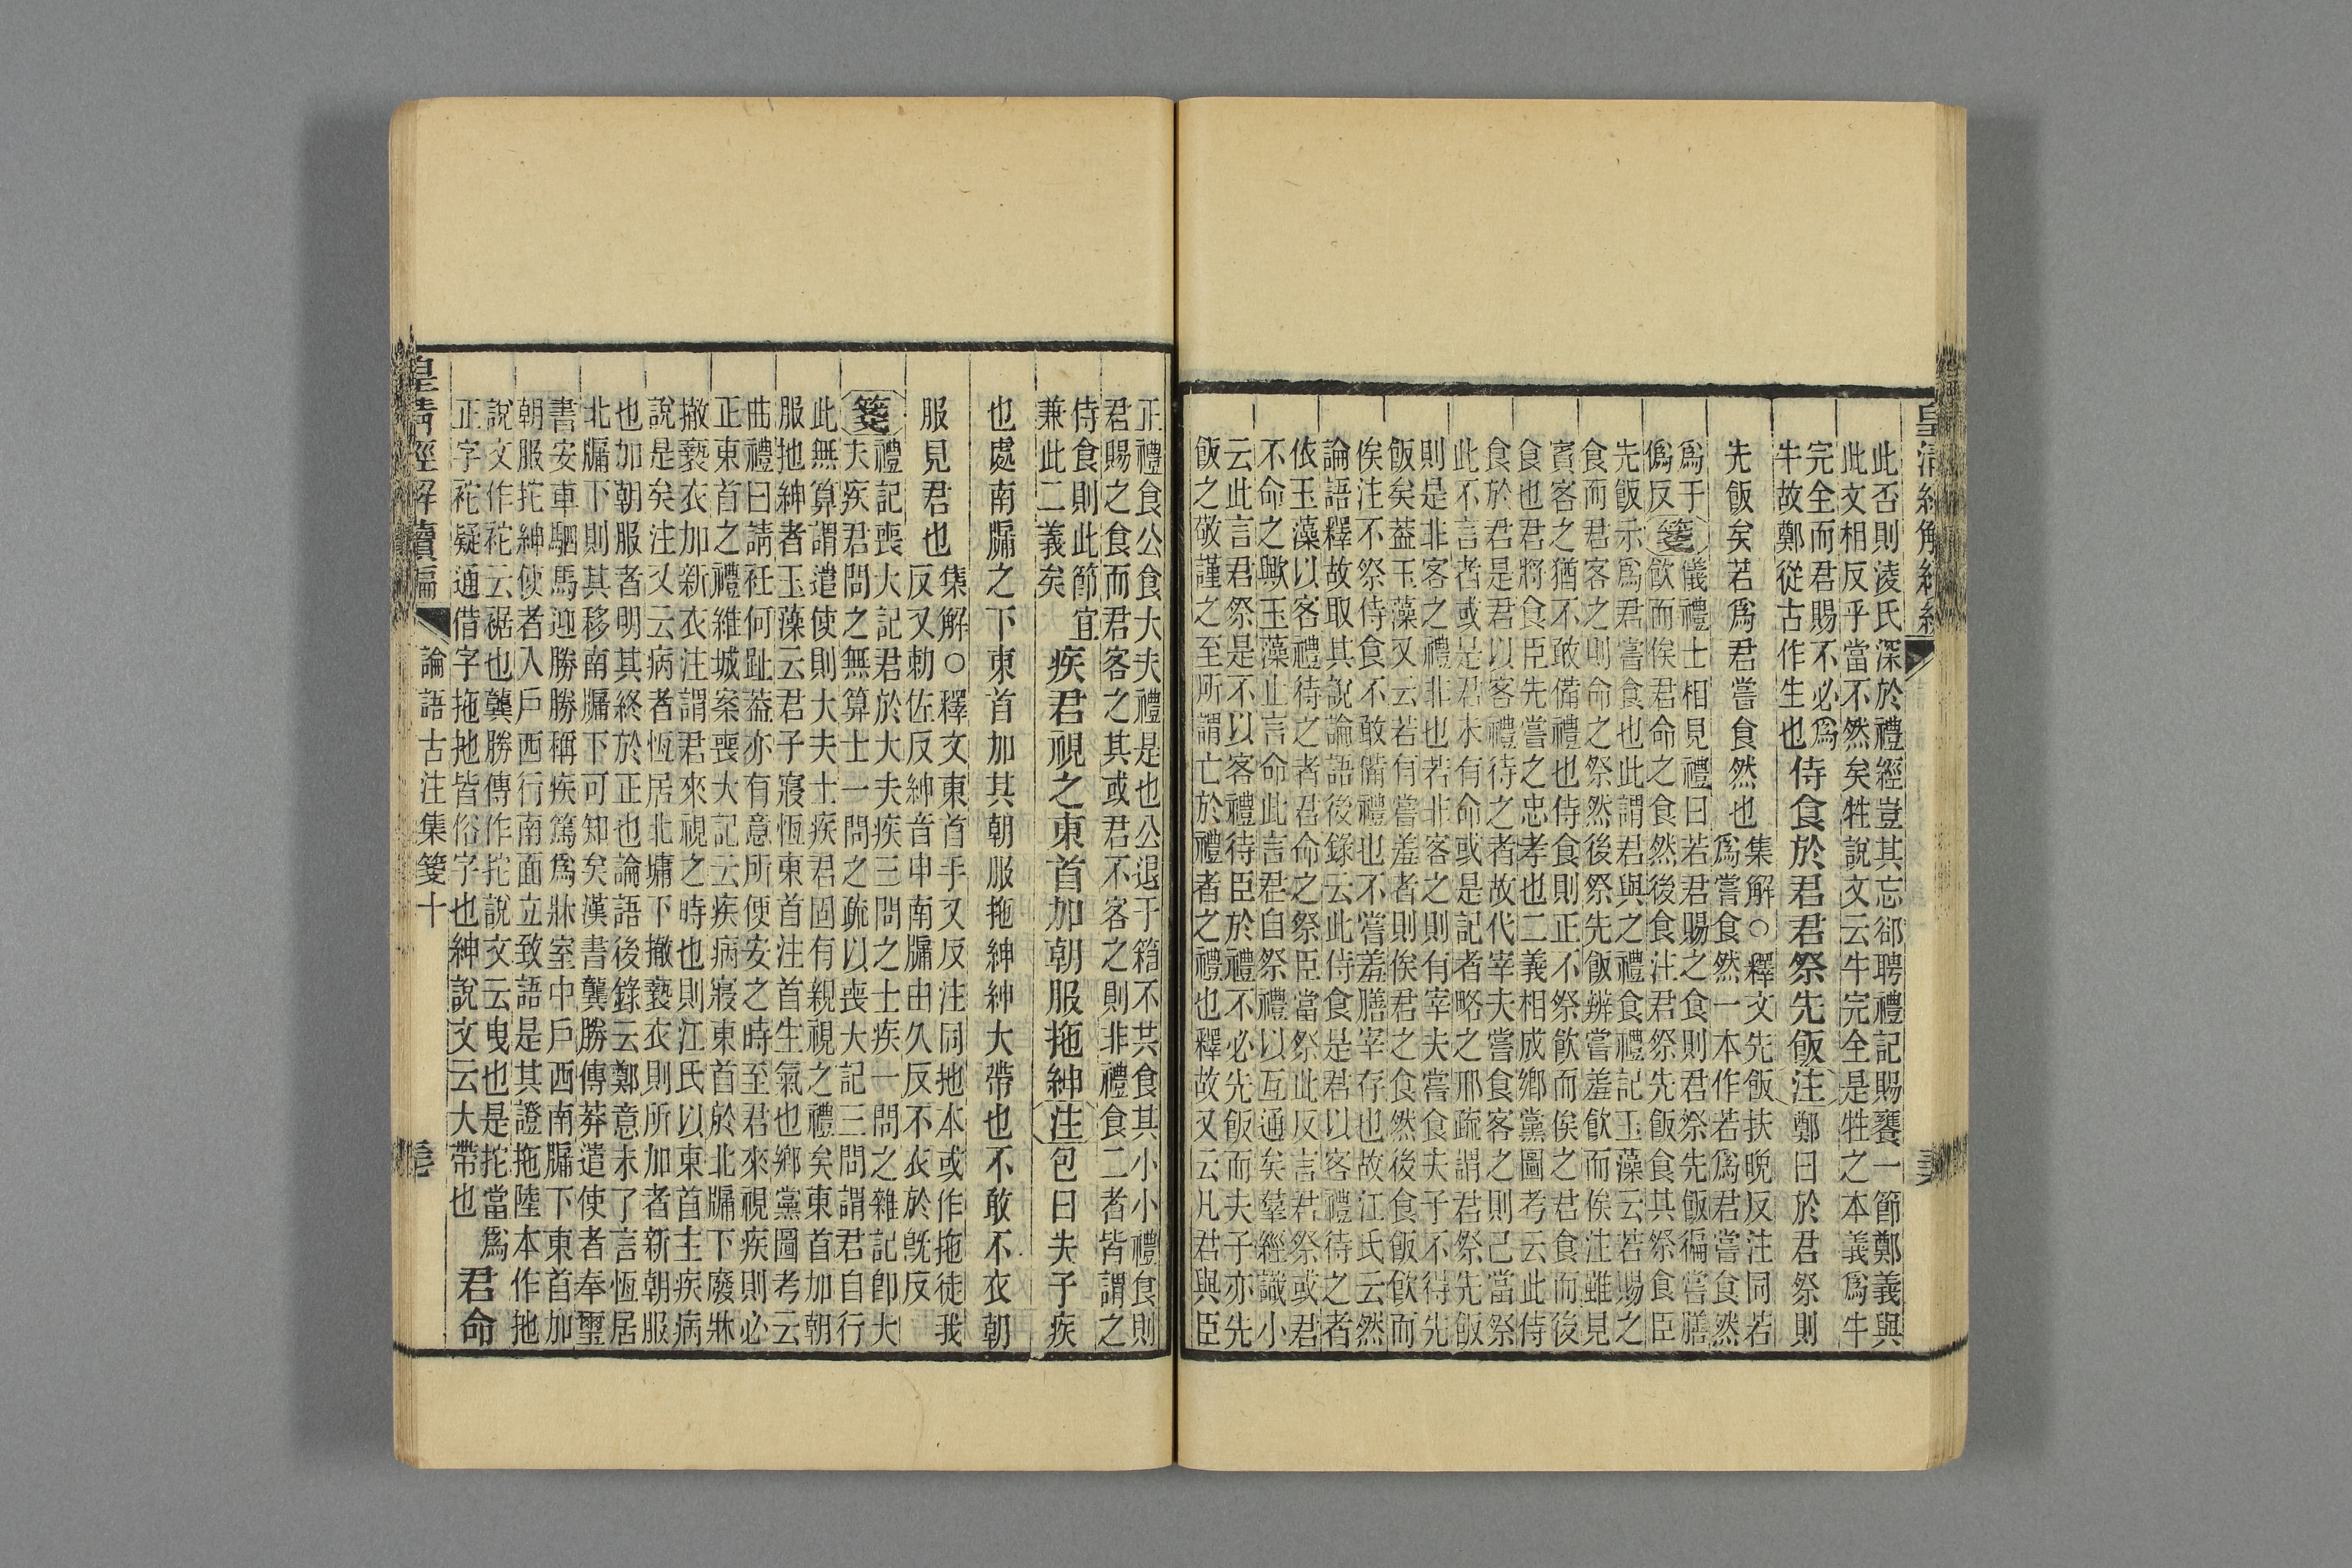 皇清經解續編
此否則淩氏深於禮經豈其忘郤聘禮記賜饔一節鄭義與
此文相反乎當不然矣牲說文云牛完全是牲之本義爲牛
完全而君賜不必爲
牛故鄭從古作生也
侍食於君君祭先飯注鄭曰於君祭則
先飯矣若爲君嘗食然也
集解○釋文先飯扶晚反注同若
爲嘗食然一本作若爲君嘗食然
爲于
僞反
箋
儀禮士相見禮曰若君賜之食則君祭先飯徧嘗膳
飲而俟君命之食然後食注君祭先飯食其祭食臣
先飯示爲君嘗食也此謂君與之禮食禮記玉藻云若賜之
食而君客之則命之祭然後祭先飯辨嘗羞飮而俟注雖見
賓客之猶不敢備禮也侍食則正不祭飮而俟之君食而後
食也君將食臣先嘗之忠孝也二義相成鄉黨圖考云此侍
食於君是君以客禮待之者故代宰夫嘗食客之則己當祭
此不言者或是君未有命或是記者略之邢疏謂君祭先飯
則是非客之禮非也若非客之則有宰夫嘗食夫子不得先
飯矣葢玉藻又云若有嘗羞者則俟君之食然後食飯飮而
俟注不祭侍食不敢備禮也不嘗羞膳宰存也故江氏云然
論語釋故取其說論語後錄云此侍食是君以客禮待之者
依玉藻以客禮待之者君命之祭臣當祭此反言君祭或君
不命之歟玉藻止言命此言君自祭禮以互通矣羣經識小
云此言君祭是不以客禮待臣於禮不必先飯而夫子亦先
飯之敬謹之至所謂亡於禮者之禮也釋故又云凡君與臣
正禮食公食大夫禮是也公退于箱不共食其小小禮食則
君賜之食而君客之其或君不客之則非禮食二者皆謂之
侍食則此節宜
兼此二義矣
疾君視之東首加朝服拖紳注包曰夫子疾
也處南牖之下東首加其朝服拖紳紳大帶也不敢不衣朝
服見君也
集解○釋文東首手又反注同拖本或作拖徒我
反又勅佐反紳音申南牖由久反不衣於旣反
箋
禮記喪大記君於大夫疾三問之士疾一問之雜記卽大
夫疾君問之無算士一問之疏以喪大記三問謂君自行
此無算謂遣使則大夫士疾君固有親視之禮矣東首加朝
服拖紳者玉藻云君子寢恆東首注首生氣也鄉黨圖考云
曲禮曰請衽何趾葢亦有意所便安之時至君來視疾則必
正東首之禮維城案喪大記云疾病寢東首於北牖下廢牀
撤褻衣加新衣注謂君來視之時也則江氏以東首主疾病
說是矣注又云病者恆居北墉下撤褻衣則所加者新朝服
也加朝服者明其終於正也論語後錄云鄭意未了言恆居
北牖下則其移南牖下可知矣漢書龔勝傳莽遣使者奉璽
書安車駟馬迎勝勝稱疾篤爲牀室中戶西南牖下東首加
朝服拕紳使者入戶西行南面立致語是其證拖陸本作拖
說文作袉云裾也龔勝傳作拕說文云曳也是拕當爲
正字袉疑通借字拖拖皆俗字也紳說文云大帶也
君命
皇清經解續編
論語古注集箋十